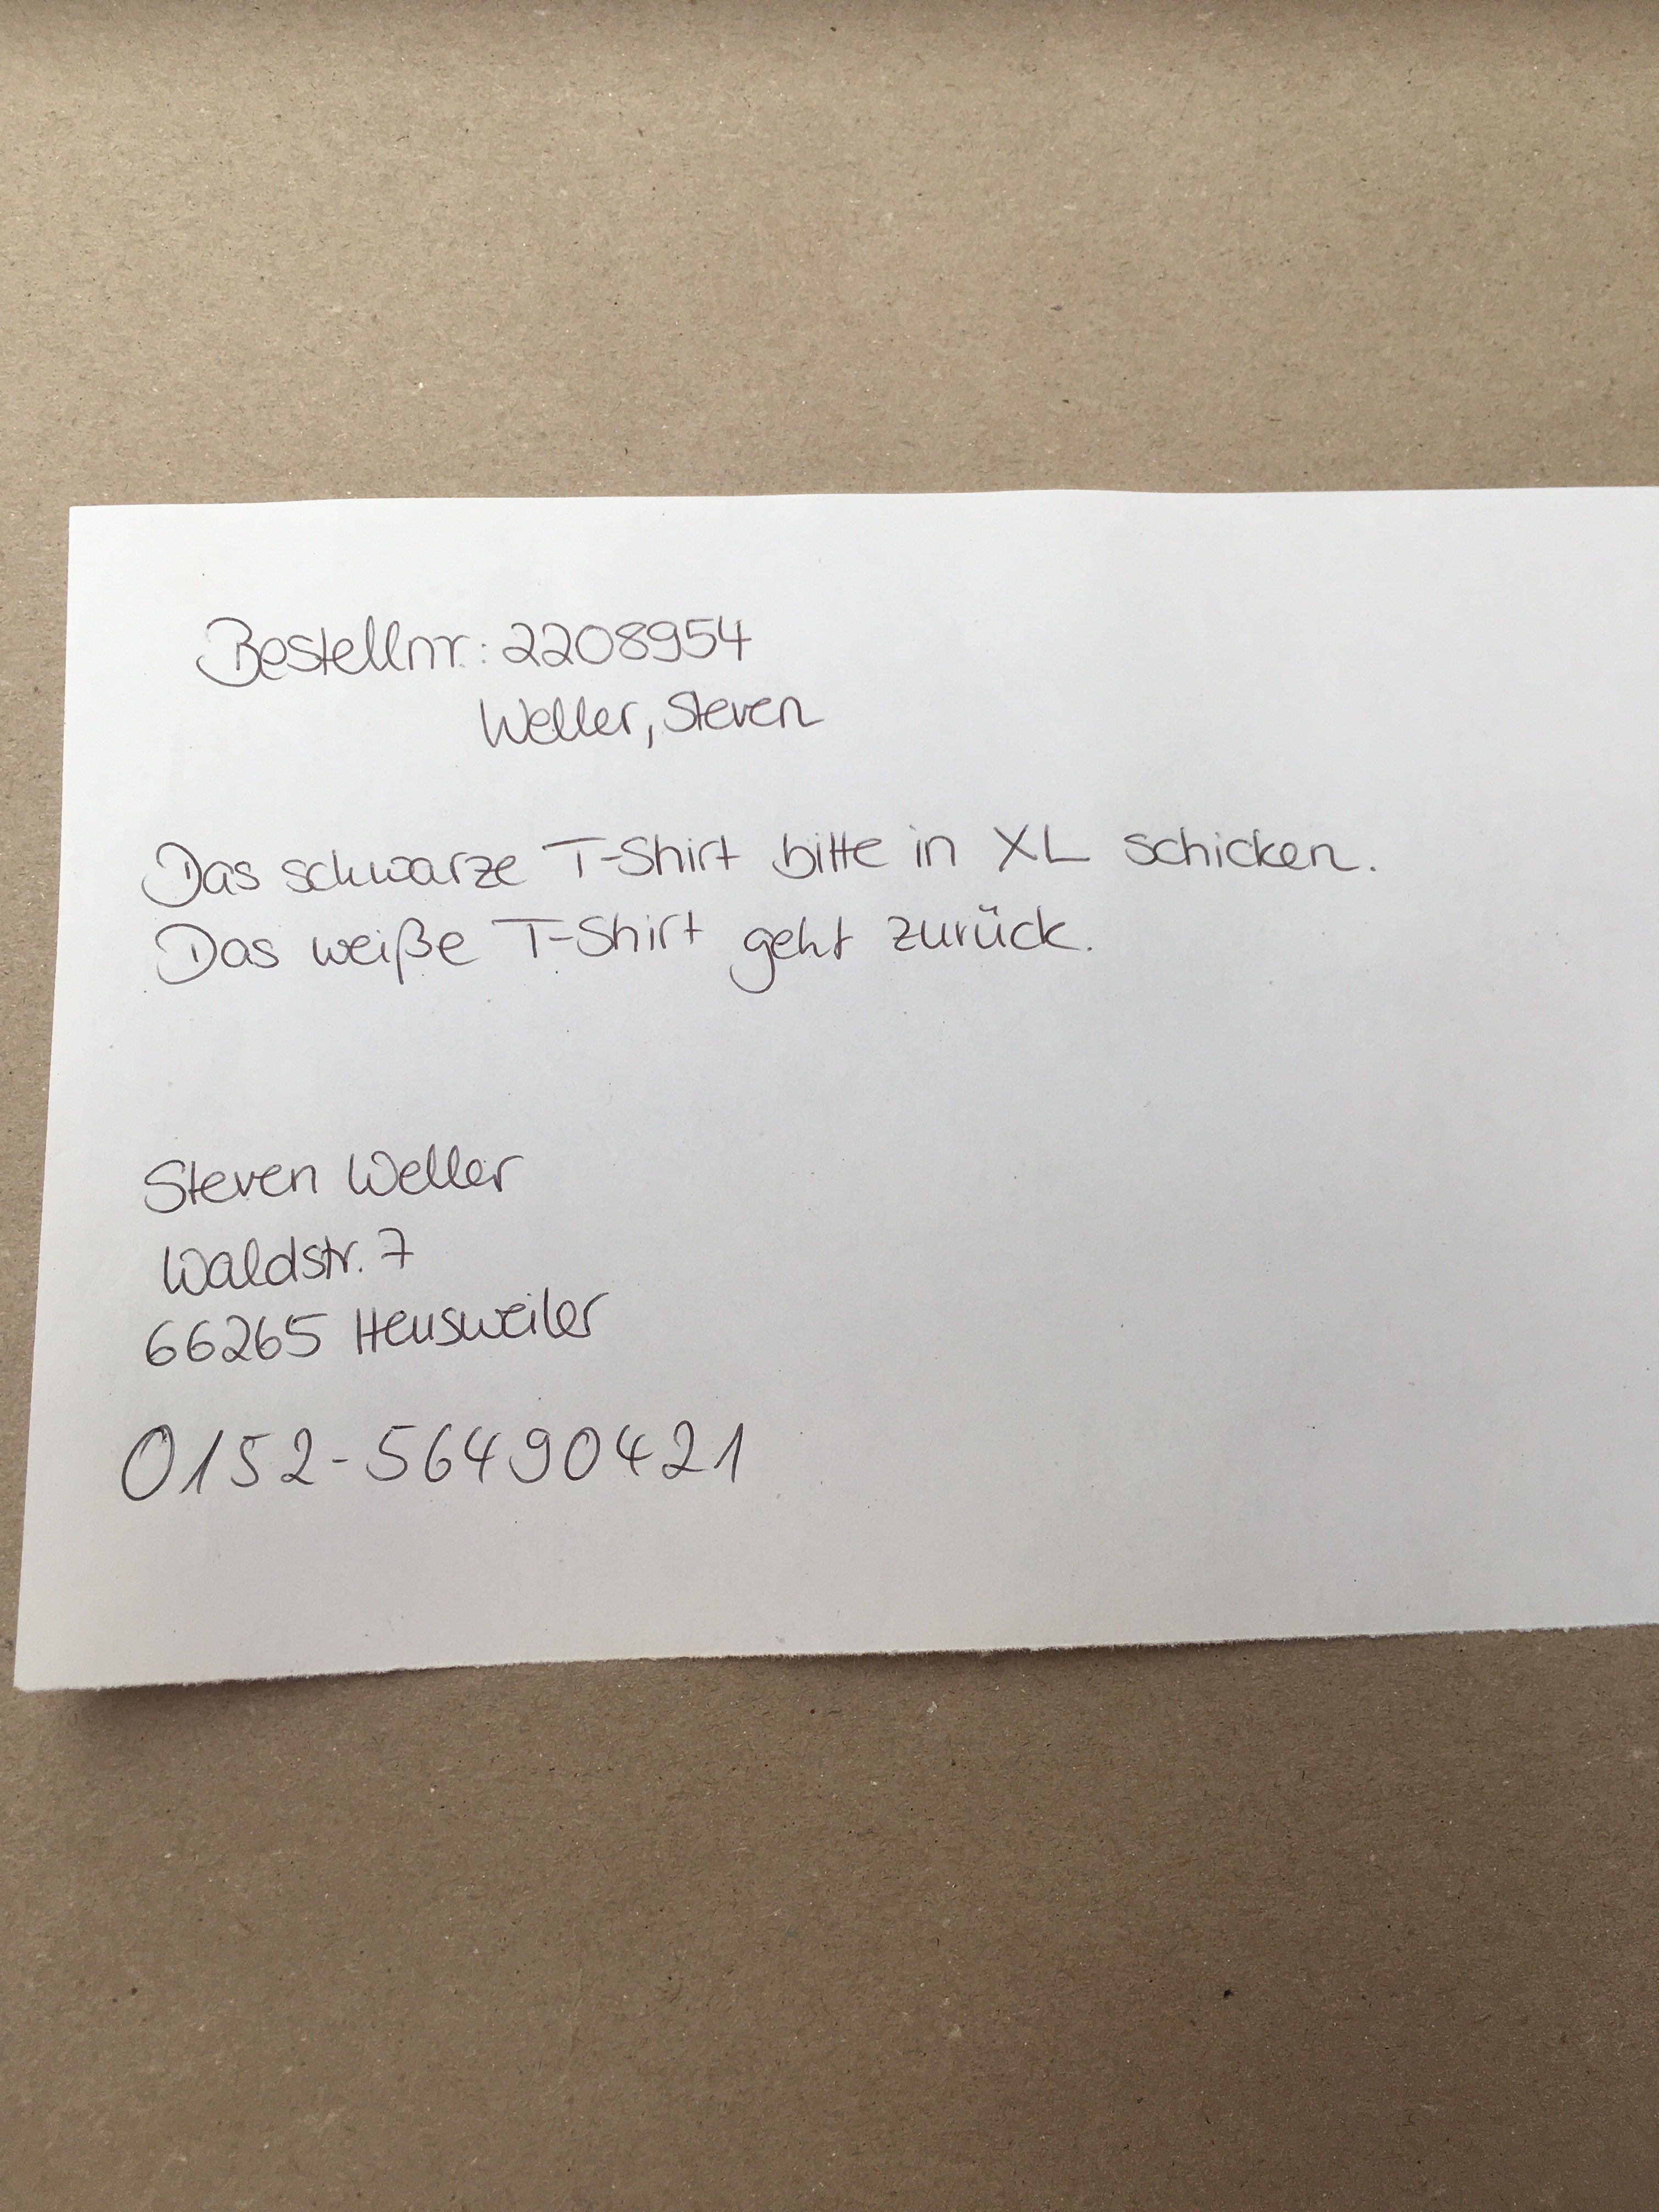 Bestellnr.: 2208954
Weller, Steven
Das schwarze T-Shirt bitte in XL schicken.
Das weiße T-Shirt geht zurück.
Steven Weller
Waldstr. 7
66265 Heusweiler
0152-56490421